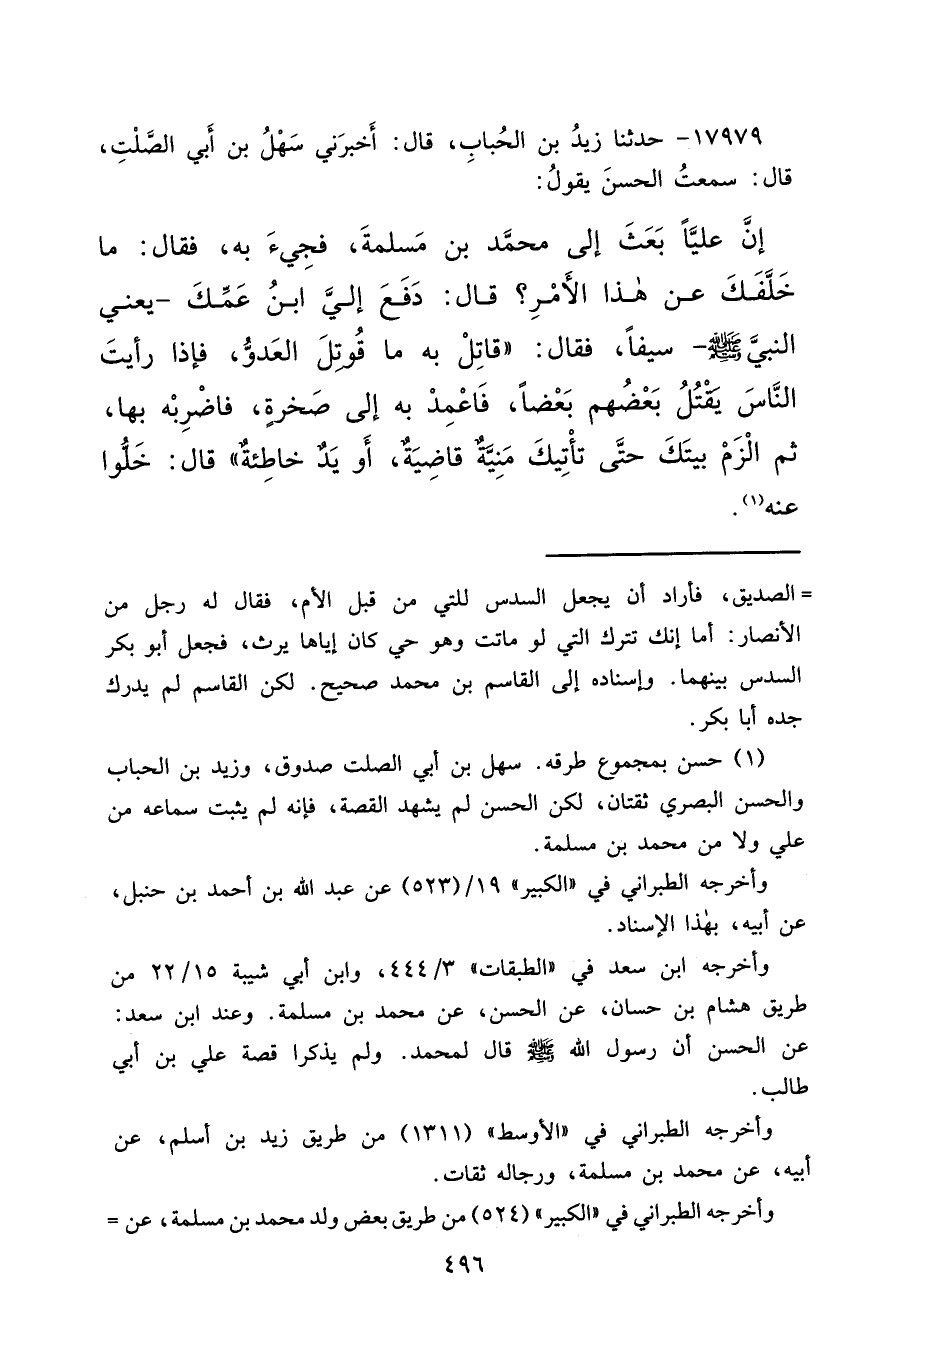 ١٧٩٧٩- حدثنا زيدُ بن الحُبابِ، قال: أَخبرَني سَهْلُ بن أَبي الصَّلْتِ،
قال: سمعتُ الحسنَ يقولُ:
إنَّ عليَّاً بَعَثَ إلى محمَّد بن مَسلمةَ، فجِيءَ به، فقال: ما
خَلَّفَكَ عن هٰذا الأَمْرِ؟ قال: دَفَعَ إليَّ ابنُ عَمِّكَ -يعني
النبيَّ ﷺ- سيفاً، فقال: «قاتِلْ به ما قُوتِلَ العَدوُّ، فإذا رأيتَ
النَّاسَ يَقْتُلُ بَعْضُهم بَعْضاً، فَاعْمِدْ به إلى صَخرةٍ، فاضْرِبْه بها،
ثم الْزَمْ بيتَكَ حتَّى تأْتِيكَ مَنِيَّةٌ قاضِيَةٌ، أَو يَدٌ خاطِئةٌ» قال: خَلُّوا
عنه(١).
= الصديق، فأراد أن يجعل السدس للتي من قبل الأم، فقال له رجل من
الأنصار: أما إنك تترك التي لو ماتت وهو حي كان إياها يرث، فجعل أبو بكر
السدس بينهما. وإسناده إلى القاسم بن محمد صحيح. لكن القاسم لم يدرك
جده أبا بكر.
(١) حسن بمجموع طرقه. سهل بن أبي الصلت صدوق، وزيد بن الحباب
والحسن البصري ثقتان، لكن الحسن لم يشهد القصة، فإنه لم يثبت سماعه من
علي ولا من محمد بن مسلمة.
وأخرجه الطبراني في «الكبير» ١٩/(٥٢٣) عن عبد الله بن أحمد بن حنبل،
عن أبيه، بهٰذا الإسناد.
وأخرجه ابن سعد في «الطبقات» ٤٤٤/٣، وابن أبي شيبة ٢٢/١٥ من
طريق هشام بن حسان، عن الحسن، عن محمد بن مسلمة. وعند ابن سعد:
عن الحسن أن رسول الله ﷺ قال لمحمد. ولم يذكرا قصة علي بن أبي
طالب.
وأخرجه الطبراني في «الأوسط» (١٣١١) من طريق زيد بن أسلم، عن
أبيه، عن محمد بن مسلمة، ورجاله ثقات.
وأخرجه الطبراني في «الكبير» (٥٢٤) من طريق بعض ولد محمد بن مسلمة، عن =
٤٩٦